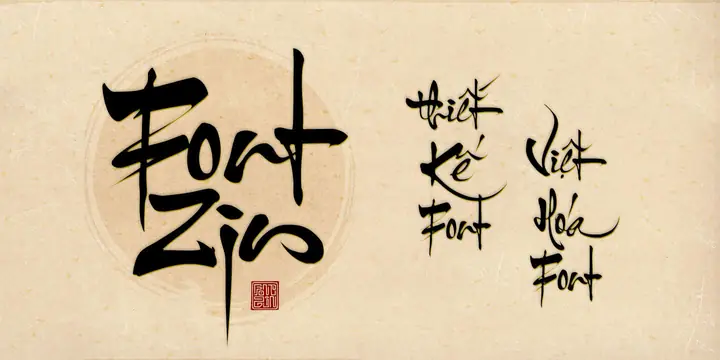 Font
Zin
thiết
Kế
Font
Việt
Hóa
Font